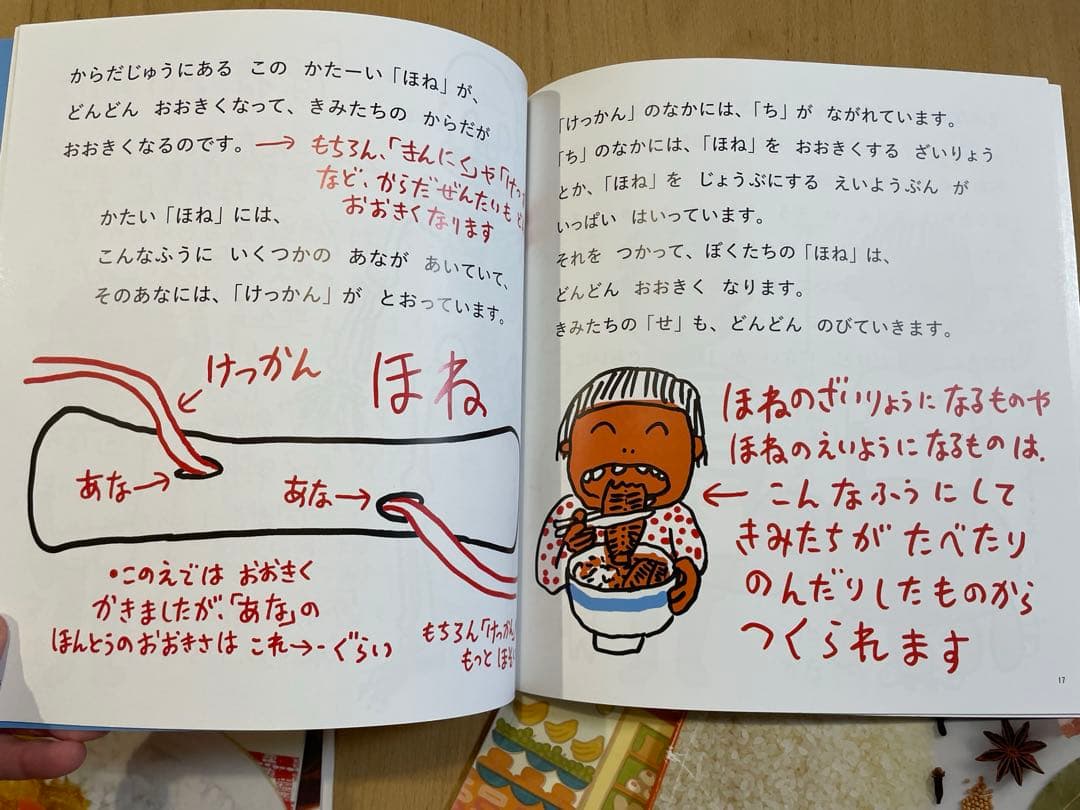 からだじゅうにある この かたーい「ほね」が、
どんどん おおきくなって、きみたちの からだが
おおきくなるのです。→ もちろん、「きんにく」や「けっ
など、からだぜんたいも
おおきくなります
かたい「ほね」には、
こんなふうに いくつかの あなが あいていて、
そのあなには、「けっかん」が とおっています。
けっかん
ほね
あな→
あな→
•このえでは おおきく
かきましたが、「あな」の
ほんとうのおおきさは これ→-ぐらい
もちろん「けっかん
もっと ほそ
「けっかん」のなかには、「ち」が ながれています。
「ち」のなかには、「ほね」を おおきくする ざいりょう
とか、「ほね」を じょうぶにする えいようぶん が
いっぱい はいっています。
それを つかって、ぼくたちの「ほね」は、
どんどん おおきく なります。
きみたちの「せ」も、どんどん のびていきます。
ほねのざいりょうになるものや
ほねのえいようになるものは、
←こんなふうにして
きみたちが たべたり
のんだりしたものから
つくられます
17